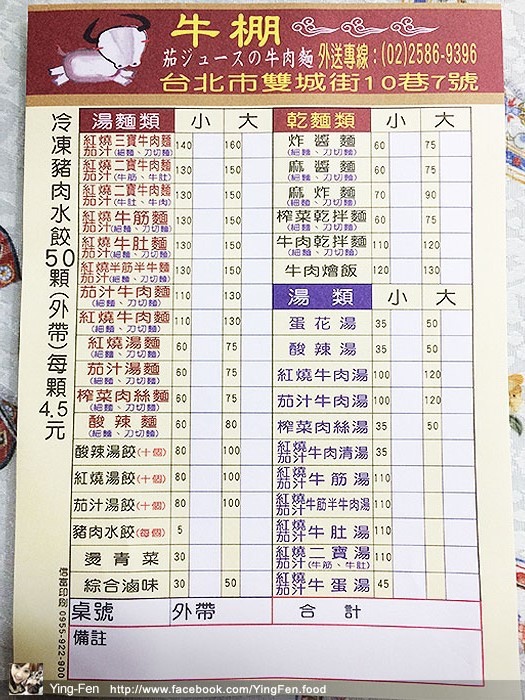 牛棚
茄ジュースの牛肉麵 外送專線：(02)2586-9396
台北市雙城街10巷7號
冷凍豬肉水餃50顆(外帶)每顆4.5元
湯麵類 小 大
紅燒茄汁三寶牛肉麵(細麵、刀切麵) 140 160
紅燒茄汁二寶牛肉麵(牛筋、牛肚) 130 150
紅燒茄汁二寶牛肉麵(牛肚、牛肉) 130 150
紅燒茄汁牛筋麵(細麵、刀切麵) 130 150
紅燒茄汁牛肚麵(細麵、刀切麵) 130 150
紅燒茄汁半筋半牛麵(細麵、刀切麵) 130 150
茄汁牛肉麵(細麵、刀切麵) 110 130
紅燒牛肉麵(細麵、刀切麵) 110 130
紅燒湯麵(細麵、刀切麵) 60 75
茄汁湯麵(細麵、刀切麵) 60 75
榨菜肉絲麵(細麵、刀切麵) 60 75
酸辣麵(細麵、刀切麵) 60 80
酸辣湯餃(十個) 80 100
紅燒湯餃(十個) 80 100
茄汁湯餃(十個) 80 100
豬肉水餃(每個) 5
燙青菜 30
綜合滷味 30 50
乾麵類 小 大
炸醬麵(細麵、刀切麵) 60 75
麻醬麵(細麵、刀切麵) 60 75
麻炸麵(細麵、刀切麵) 70 90
榨菜乾拌麵(細麵、刀切麵) 60 75
牛肉乾拌麵(細麵、刀切麵) 110 120
牛肉燴飯 120 130
湯類 小 大
蛋花湯 35 50
酸辣湯 35 50
紅燒牛肉湯 100 120
茄汁牛肉湯 100 120
榨菜肉絲湯 35 50
紅燒茄汁牛肉清湯 35
紅燒茄汁牛筋湯 110
紅燒茄汁牛筋半牛肉湯 110
紅燒茄汁牛肚湯 110
紅燒茄汁二寶湯(牛筋、牛肚) 110
紅燒茄汁牛蛋湯 45
桌號 外帶 合計
備註
0955-922-900
Ying-Fen http://www.facebook.com/YingFen.food